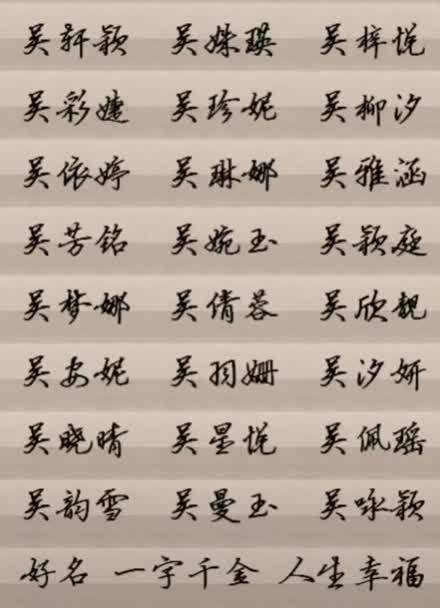 吴轩颖 吴姝瑛 吴梓悦
吴彩婕 吴珍妮 吴柳汐
吴依婷 吴琳娜 吴雅涵
吴芳铭 吴婉玉 吴颖庭
吴梦娜 吴倩蓉 吴欣靓
吴安妮 吴羽姗 吴汐妍
吴晓晴 吴星悦 吴佩瑶
吴韵雪 吴曼玉 吴咏颖
好名 一字千金 人生幸福